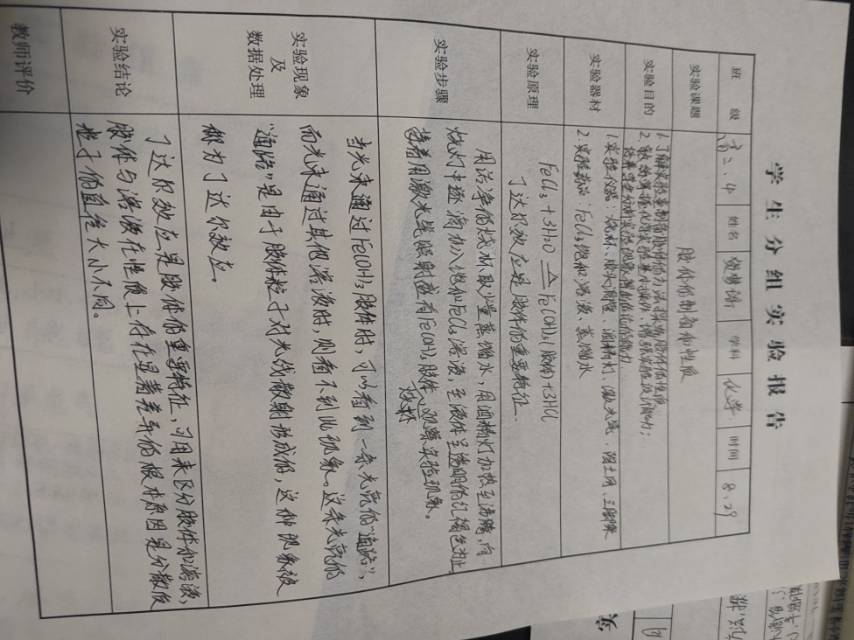 学生分组实验报告
班级 高二.4 姓名 学科 化学 时间 8.29
实验课题 胶体的制备和性质
实验目的 1.了解实验室制备胶体的方法,探究胶体的性质
2.
实验器材 1.实验仪器:烧杯、胶头滴管、酒精灯、激光笔、
2.实验药品:FeCl₃饱和溶液、蒸馏水
实验原理 FeCl₃+3H₂O △ Fe(OH)₃(胶体)+3HCl
丁达尔效应是胶体的重要特征.
实验步骤 用洁净的烧杯取少量蒸馏水,用酒精灯加热至沸腾,向
烧杯中逐滴加入饱和FeCl₃溶液,至液体呈透明的红褐色,
用激光笔照射盛有Fe(OH)₃胶体、观察实验现象。
烧杯
实验现象
及
数据处理
当光束通过Fe(OH)₃胶体时,可以看到一条光亮的“通路”,
而光束通过其他溶液时,则看不到此现象。这条光亮的
“通路”是由于胶体粒子对光线散射形成的,这种现象被
称为丁达尔效应。
实验结论 丁达尔效应是胶体的重要特征,可用来区分胶体和溶液,
胶体与溶液在性质上存在显著差异的根本原因是分散质
粒子的直径大小不同。
教师评价